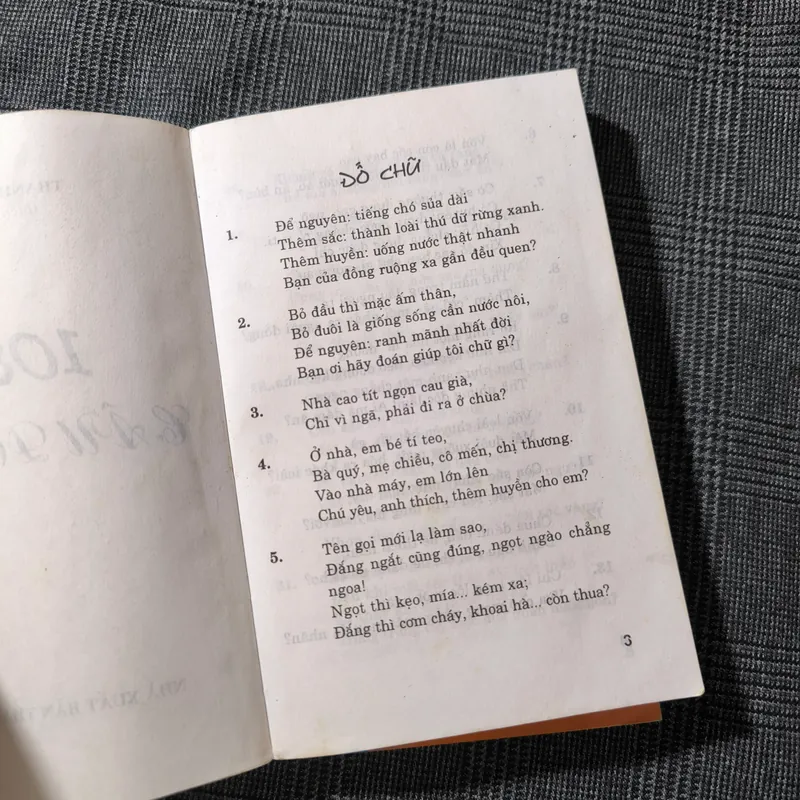 ĐỐ CHỮ
1. Để nguyên: tiếng chó sủa dài
Thêm sắc: thành loài thú dữ rừng xanh.
Thêm huyền: uống nước thật nhanh
Bạn của đồng ruộng xa gần đều quen?
2. Bỏ đầu thì mặc ấm thân,
Bỏ đuôi là giống sống cần nước nôi,
Để nguyên: ranh mãnh nhất đời
Bạn ơi hãy đoán giúp tôi chữ gì?
3. Nhà cao tít ngọn cau già,
Chỉ vì ngã, phải đi ra ở chùa?
4. Ở nhà, em bé tí teo,
Bà quý, mẹ chiều, cô mến, chị thương.
Vào nhà máy, em lớn lên
Chú yêu, anh thích, thêm huyền cho em?
5. Tên gọi mới lạ làm sao,
Đắng ngắt cũng đúng, ngọt ngào chẳng
ngoa!
Ngọt thì kẹo, mía... kém xa;
Đắng thì cơm cháy, khoai hà... còn thua?
3